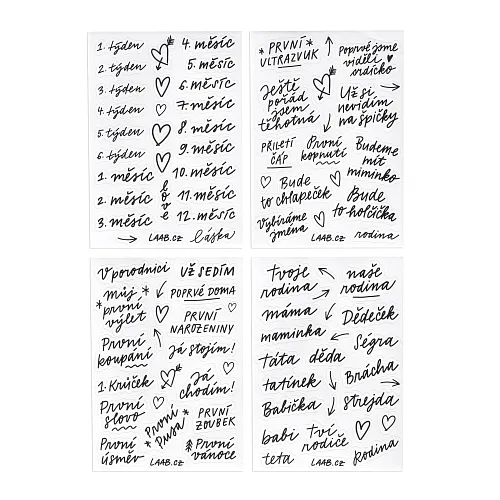 1. týden
2. týden
3. týden
4. týden
5. týden
6. týden
1. měsíc
2. měsíc
3. měsíc
love
4. měsíc
5. měsíc
6. měsíc
7. měsíc
8. měsíc
9. měsíc
10. měsíc
11. měsíc
12. měsíc
LAAB.CZ
láska
PRVNÍ
ULTRAZVUK
Poprvé jsme
viděli
srdíčko
Ještě
pořád
jsem
těhotná
Už si
nevidím
na špičky
PŘILETÍ
ČÁP
První
kopnutí
Budeme
mít
miminko
Bude
to chlapeček
Bude
to holčička
Vybíráme
jména
rodina
LAAB.CZ
V porodnici
UŽ SEDÍM
Můj
první
výlet
POPRVÉ DOMA
PRVNÍ
NAROZENINY
První
koupání
Já stojím!
1. Krůček
Já
chodím!
První
slovo
První
Pusa
PRVNÍ
ZOUBEK
První
úsměv
První
vánoce
LAAB.CZ
Tvoje
rodina
naše
rodina
máma
Dědeček
maminka
Ségra
táta děda
tatínek
Brácha
Babička
strejda
babi
teta
Tví
rodiče
Rodina
LAAB.CZ